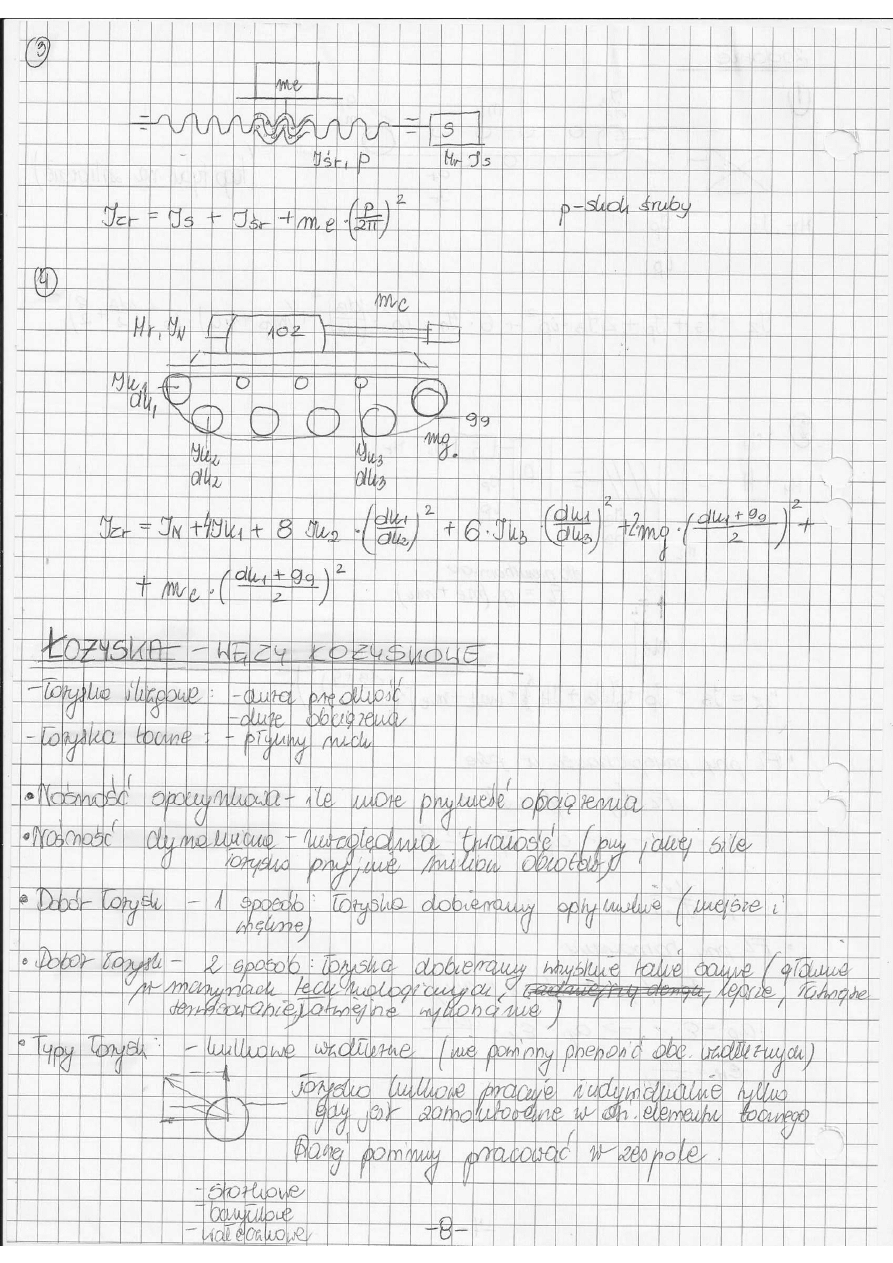 3
me
S
Jśr, p
Mr Js
Jzr = Js + Jśr + me · (p/2π)²
p-skok śruby
4
mc
Mr, JN
102
Jk1
dk1
gg
mg.
Jk2
dk2
Jk3
dk3
Jzr = JN + 4Jk1 + 8 Jk2 · (dk1/dk2)² + 6 · Jk3 · (dk1/dk3)² + 2·mg · (dk1 + gg/2)² +
+ mc · (dk1 + gg/2)²
ŁOŻYSKA - WĘZŁY ŁOŻYSKOWE
- Łożyska ślizgowe: - duża prędkość
- duże obciążenia
- Łożyska toczne: - płynny ruch
• Nośność spoczynkowa - ile może przynieść obciążenia
• Nośność dynamiczna - uwzględnia trwałość (przy jakiej sile
łożysko przyjmie milion obrotów)
• Dobór łożysk - 1 sposób: łożyska dobieramy optymalnie (miejsce i
• Dobór łożysk - 2 sposób: łożyska dobieramy wszystkie takie same (głównie
w maszynach technologicznych, lepsze, łatwiejsze
wykonanie)
• Typy łożysk: - kulkowe wzdłużne (nie powinny przenosić obc. wzdłużnych)
Łożysko kulkowe pracuje indywidualnie tylko
gdy jest zamontowane w elementu tocznego
powinny pracować w zespole.
- skośne
- baryłkowe
- wałeczkowe
-8-